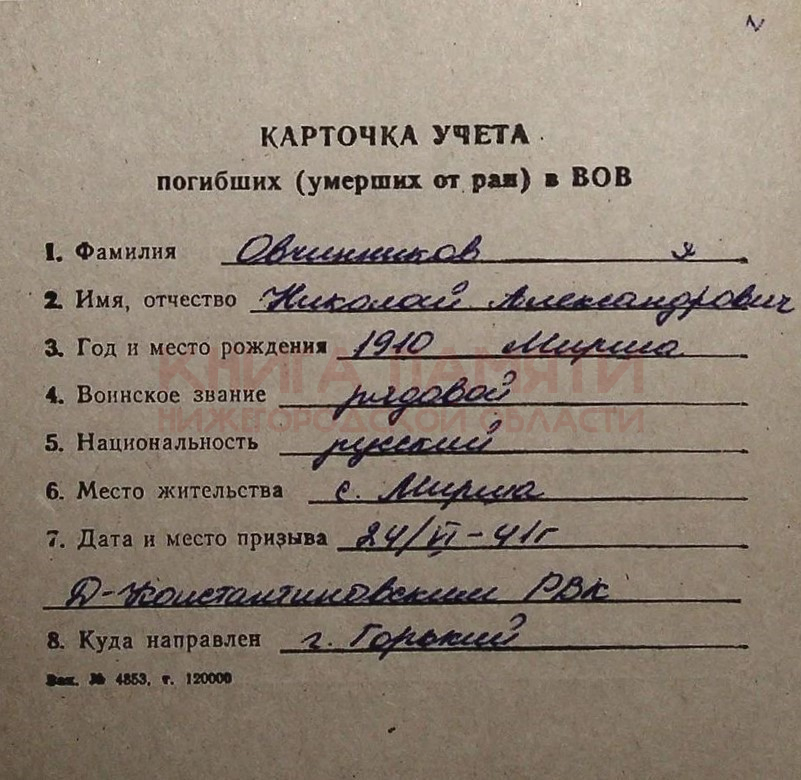 КАРТОЧКА УЧЕТА
погибших (умерших от ран) в ВОВ
1. Фамилия Овчинников я
2. Имя, отчество Николай Александрович
3. Год и место рождения 1910 Мирша
КНИГА ПАМЯТИ
4. Воинское звание рядовой
НИЖЕГОРОДСКОЙ ОБЛАСТИ
5. Национальность русский
6. Место жительства с. Мирша
7. Дата и место призыва 24/VI-41г
Д-Константиновским РВК
8. Куда направлен г. Горький
Зак. № 4853, т. 120000